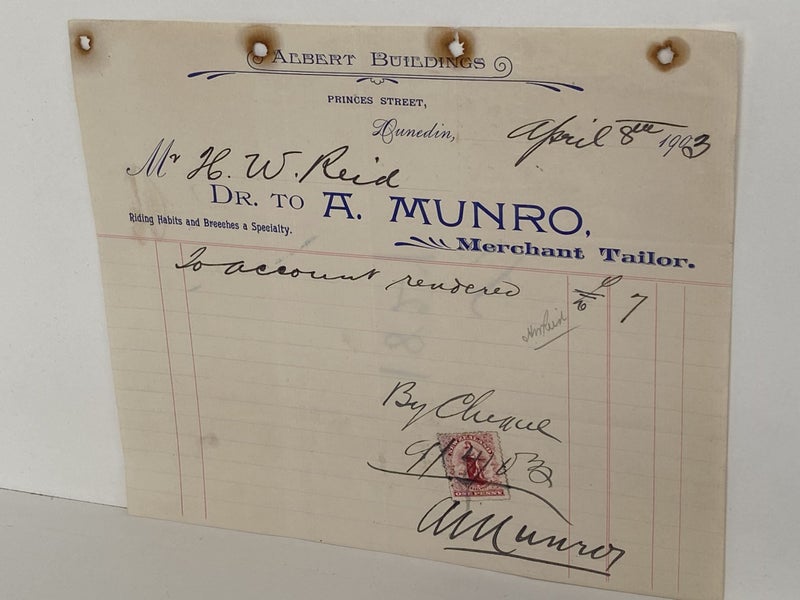 ALBERT BUILDINGS
PRINCES STREET,
Dunedin, April 8th 1903
Mr H. W. Reid
DR. TO A. MUNRO,
Riding Habits and Breeches a Specialty.
Merchant Tailor.
To account rendered £ 7
HW Reid
By Cheque
9/4/03
ONE PENNY
A Munro